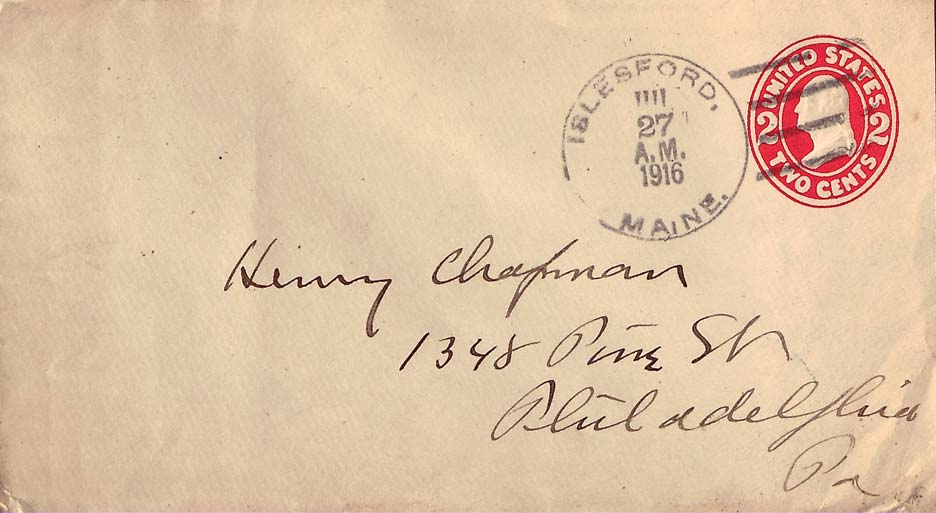 ISLESFORD,
27
A.M.
1916
MAINE.
UNITED STATES
2 2
TWO CENTS
Henry Chapman
1348 Pine St
Philadelphia
Pa